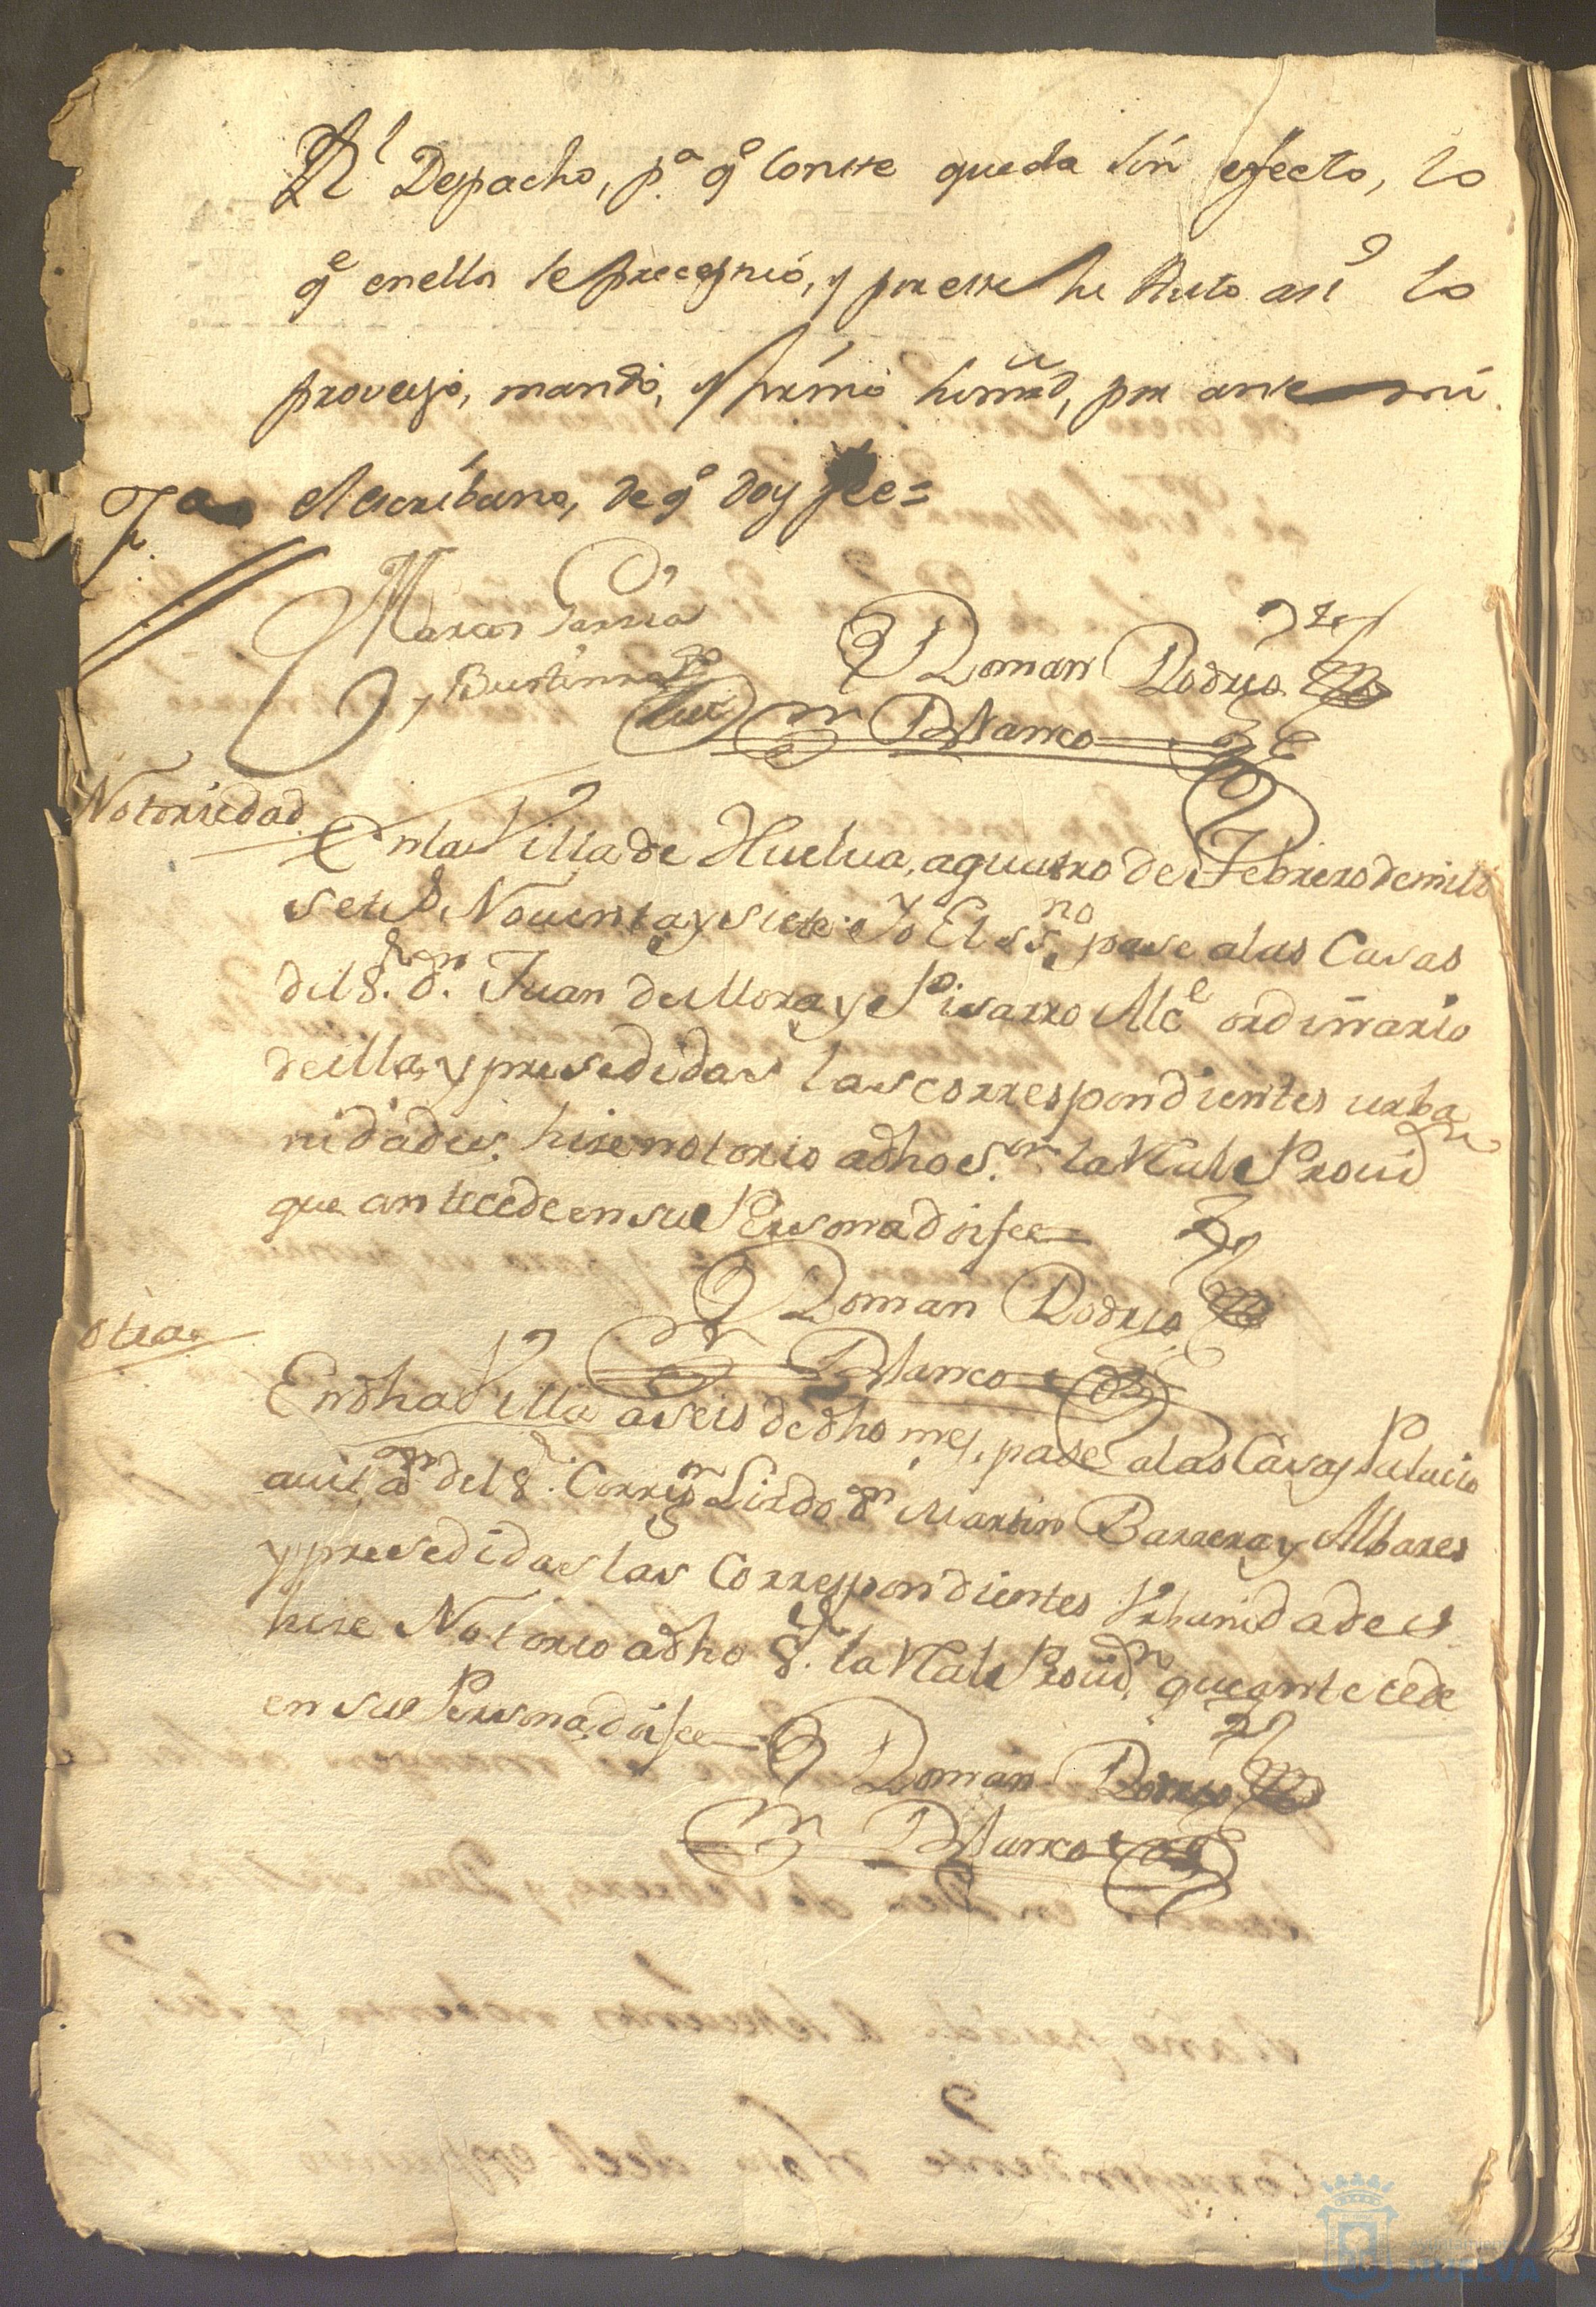 Rl Despacho, p.a q.e conste queda sin efecto, lo
q.e en ella se precepnió, y por este su Auto así lo
proveyó, mandó, y firmó su mrd, por ante mí
el escribano, de q.e doy fee=
Marcos García
y Bustinza
Roman Rodrig.z
Blanco
Notoriedad
En la Villa de Huelua, a quatro de Febrero de mil
set.s Nouenta y siete: Yo El ss.no pase a las Casas
del S.or d.n Juan de Mora y Pisarro Alc.e ordinario
de ella, y presedidas las correspondientes urba
nidades. hise notorio a dho S.or la Rl. Provid.n
que antecede en su Persona doi fee
Roman Rodrig.z
Blanco
otra
En dha Villa a seis de dho mes, pase a las Casas Palacio
auitaon del S.r Corrig.r Lizdo d.n Martin Barrera y Albares
y presedidas las Correspondientes Vrbanidades
hise Notorio a dho S.or la Rl. Provid.n que antecede
en su Persona doi fee
Roman Rodrig.z
Blanco
HUELVA